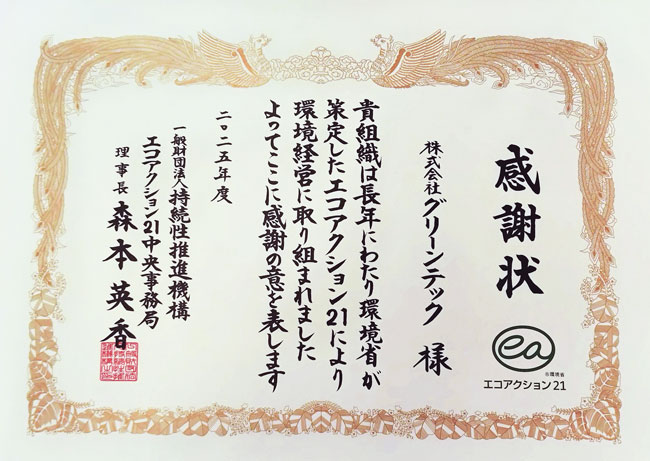 感謝状
ea
©環境省
エコアクション21
株式会社グリーンテック 様
貴組織は長年にわたり環境省が
策定したエコアクション21により
環境経営に取り組まれました
よってここに感謝の意を表します
二〇二五年度
一般財団法人持続性推進機構
エコアクション21中央事務局
理事長 森本英香